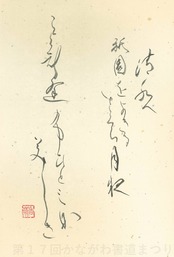 清水へ
祇園をよぎる
桜月夜
こよひ逢ふ
人みな
うつくしき
第17回かながわ書道まつり